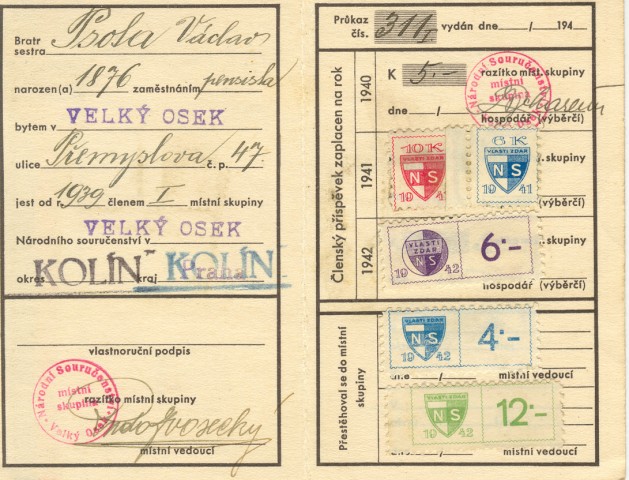 Bratr
sestra Psota Václav
narozen(a) 1876 zaměstnáním pensista
VELKÝ OSEK
bytem v
ulice Přemyslova č. p. 47.
jest od r. 1939 členem I místní skupiny
VELKÝ OSEK
Národního souručenství v
KOLÍN KOLÍN
okres kraj Praha
vlastnoruční podpis
Národní Souručenství
místní
skupina
Velký Osek
razítko místní skupiny
místní vedoucí
Průkaz
čís. 311/I vydán dne / 194
Členský příspěvek zaplacen na rok
1940
K 5.- razítko míst. skupiny
Národní Souručenství
místní
skupina
dne /
hospodář (výběrčí)
1941
10 K
VLASTI ZDAR
NS
19 41
6 K
VLASTI ZDAR
NS
19 41
skupiny
(výběrčí)
1942
VLASTI
ZDAR
NS
19 42
6·-
skupiny
hospodář (výběrčí)
Přestěhoval se do místní
skupiny
VLASTI ZDAR
NS
19 42
4·-
dne / místní vedoucí
VLASTI ZDAR
NS
19 42
12·-
místní vedoucí